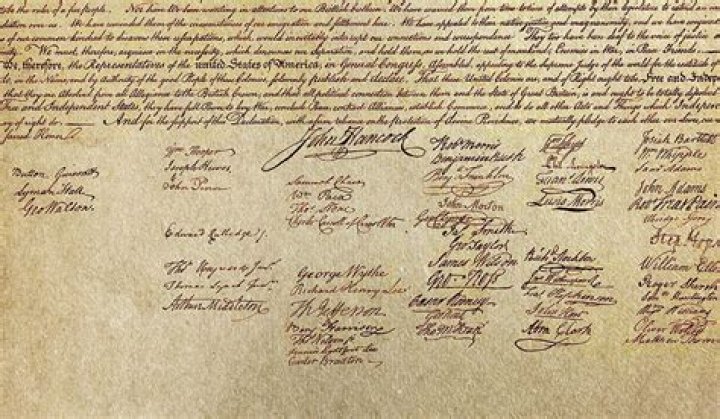 take the ruler of a free people. Nor have We been wanting in attentions to our British brethren. We have warned them from time to time of attempts by their legislature to extend an
diction over us. We have reminded them of the circumstances of our emigration and settlement here. We have appealed to their native justice and magnanimity, and we have
of our common kindred to disavow these usurpations, which would inevitably interrupt our connections and correspondence. They too have been deaf to the voice of justice
We must, therefore, acquiesce in the necessity, which denounces our Separation, and hold them, as we hold the rest of mankind, Enemies in War, in Peace Friends.
We, therefore, the Representatives of the united States of America, in General Congress, Assembled, appealing to the Supreme Judge of the world for the rectitude of
do, in the Name, and by Authority of the good People of these Colonies, solemnly publish and declare, That these United Colonies are, and of Right ought to be Free and Indep
that they are Absolved from all Allegiance to the British Crown, and that all political connection between them and the State of Great Britain, is and ought to be totally
Free and Independent States, they have full Power to levy War, conclude Peace, contract Alliances, establish Commerce, and to do all other Acts and Things which Indepen
right do. And for the support of this Declaration, with a firm reliance on the Protection of divine Providence, we mutually pledge to each other our Lives, our
Button Gwinnett
Lyman Hall
Geo Walton.
Wm Hooper
Joseph Hewes,
John Penn
Edward Rutledge
Thos Heyward Junr
Thomas Lynch Junr
Arthur Middleton
John Hancock
Samuel Chase
Wm Paca
Thos Stone
Charles Carroll of Carrollton
George Wythe
Richard Henry Lee
Th Jefferson
Benj Harrison
Thos Nelson jr
Francis Lightfoot Lee
Carter Braxton
Robt Morris
Benjamin Rush
Benj Franklin
John Morton
Geo Clymer
Jas Smith
Geo Taylor
James Wilson
Geo Ross
Caesar Rodney
Geo Read
Tho M:Kean
Phil. Livingston
Frans Lewis
Lewis Morris
Richd Stockton
Jno Witherspoon
Fras Hopkinson
John Hart
Abra Clark
Josiah Bartlett
Wm Whipple
Saml Adams
John Adams
Robt Treat Paine
Elbridge Gerry
Step. Hop
William Elle
Roger Sherm
Saml Huntington
Wm Williams
Oliver Wolcott
Matthew Thorn